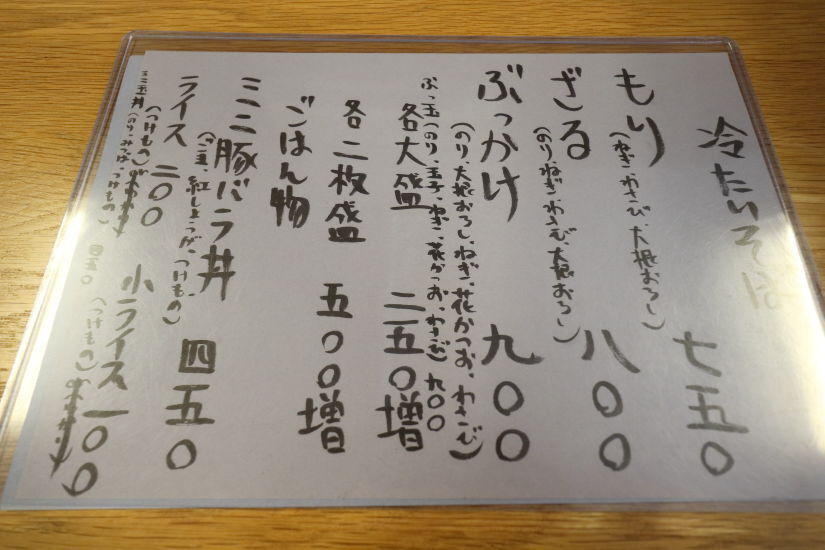 冷たいそば
もり 七五〇
(ねぎ、わさび、大根おろし)
ざる 八〇〇
(のり、ねぎ、わさび、大根おろし)
ぶっかけ 九〇〇
(のり、大根おろし、ねぎ、花かつお、わさび)
ぶっ玉(のり、玉子、ねぎ、花かつお、わさび) 九〇〇
各大盛 二五〇増
各二枚盛 五〇〇増
ごはん物
ミニ豚バラ丼 四五〇
(ごま、紅しょうが、つけもの)
ライス 二〇〇 小ライス 一〇〇
(つけもの) (つけもの)
ミニ玉丼(のり、みつば、つけもの) 四五〇